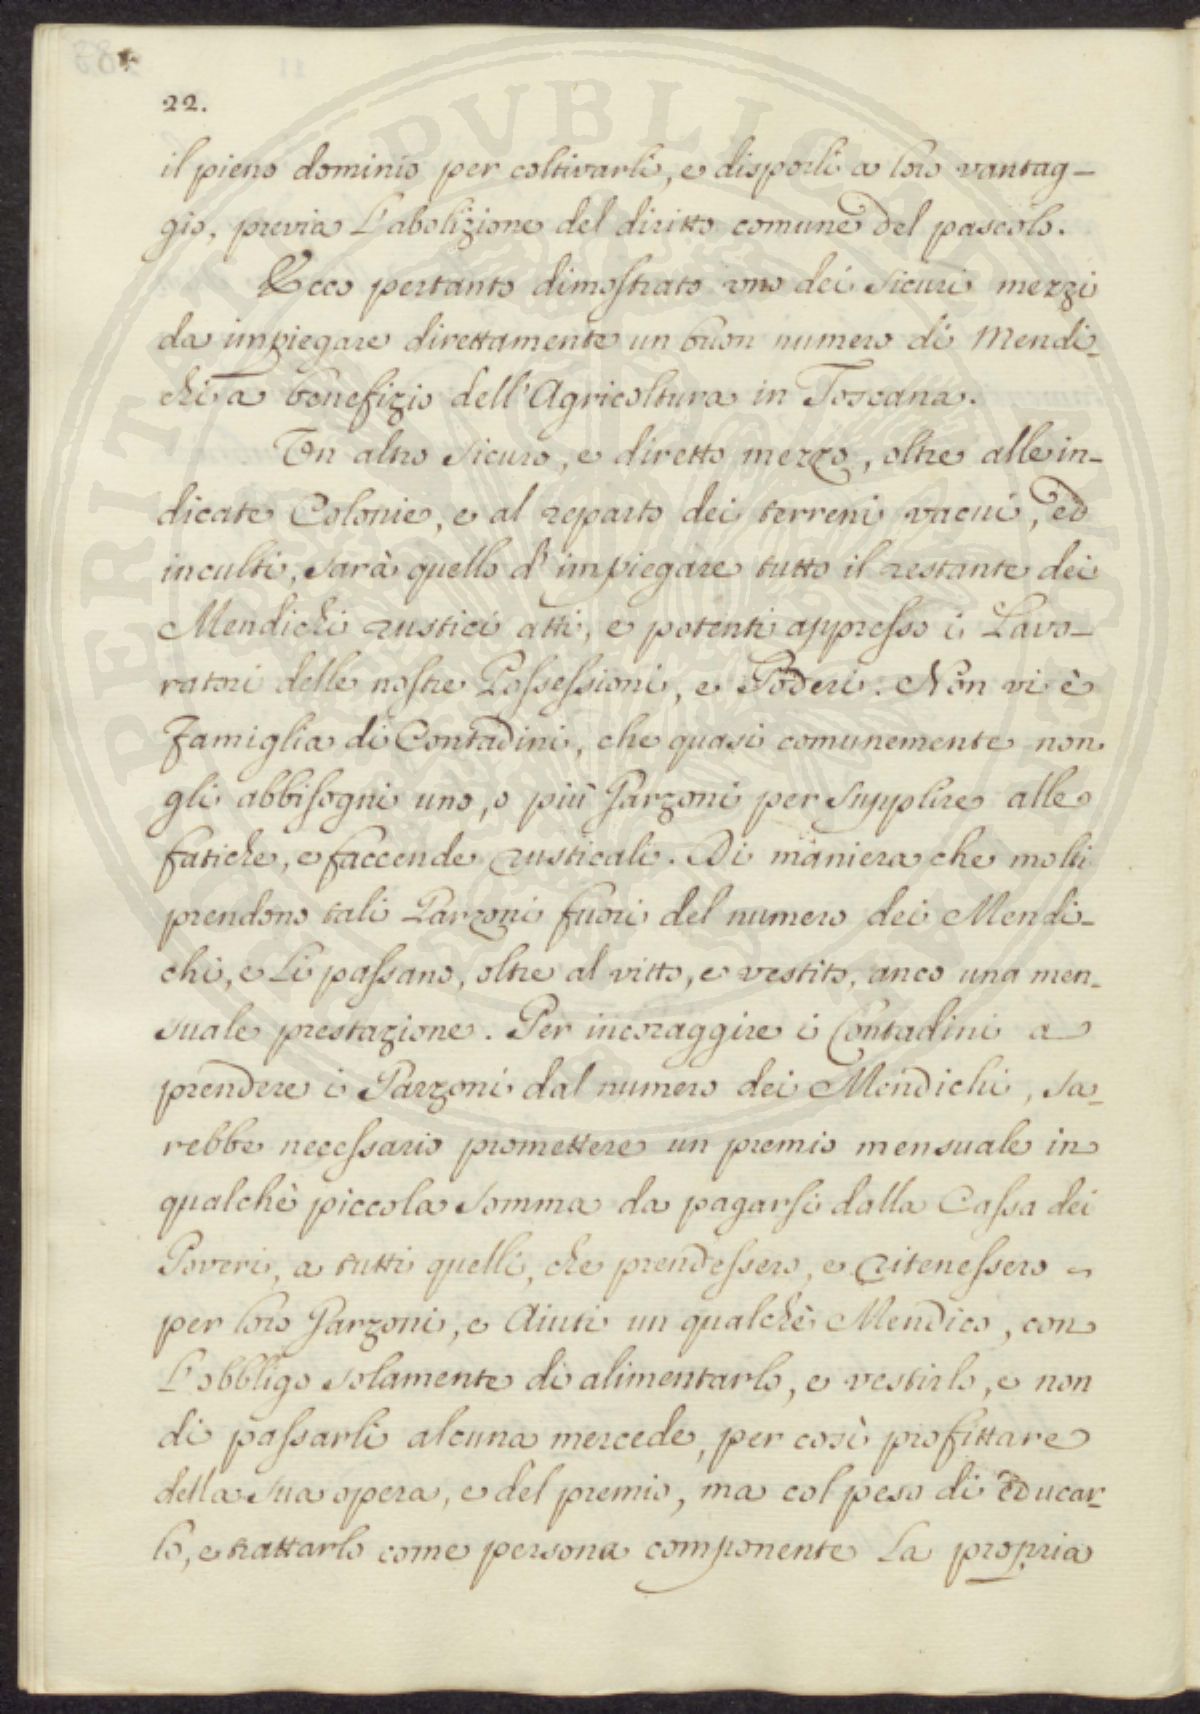 22.
il pieno dominio per coltivarli, e disporli a loro vantag-
gio, previa L'abolizione del diritto comune del pascolo.
Ecco pertanto dimostrato uno dei sicuri mezzi
da impiegare direttamente un buon numero di Mendi-
chi a benefizio dell'Agricoltura in Toscana.
Un altro sicuro, e diretto mezzo, oltre alle in-
dicate Colonie, e al reparto dei terreni vacui, ed
inculti, sarà quello d'impiegare tutto il restante dei
Mendichi rustici atti, e potenti appresso i Lavo-
ratori delle nostre Possessioni, e Poderi. Non vi è
Famiglia di Contadini, che quasi comunemente non
gli abbisogni uno, o più Garzoni per supplire alle
fatiche, e faccende rusticali. Di maniera che molti
prendono tali Garzoni fuori del numero dei Mendi-
chi, e Li passano, oltre al vitto, e vestito, anco una men-
suale prestazione. Per incoraggire i Contadini a
prendere i Garzoni dal numero dei Mendichi, sa-
rebbe necessario promettere un premio mensuale in
qualchè piccola somma da pagarsi dalla Cassa dei
Poveri, a tutti quelli, che prendessero, e ritenessero
per loro Garzoni, e Aiuti un qualchè Mendico, con
L'obbligo solamente di alimentarlo, e vestirlo, e non
di passarli alcuna mercede, per così profittare
della sua opera, e del premio, ma col peso di educar-
lo, e trattarlo come persona componente La propria
PERITAT PVBLICAE